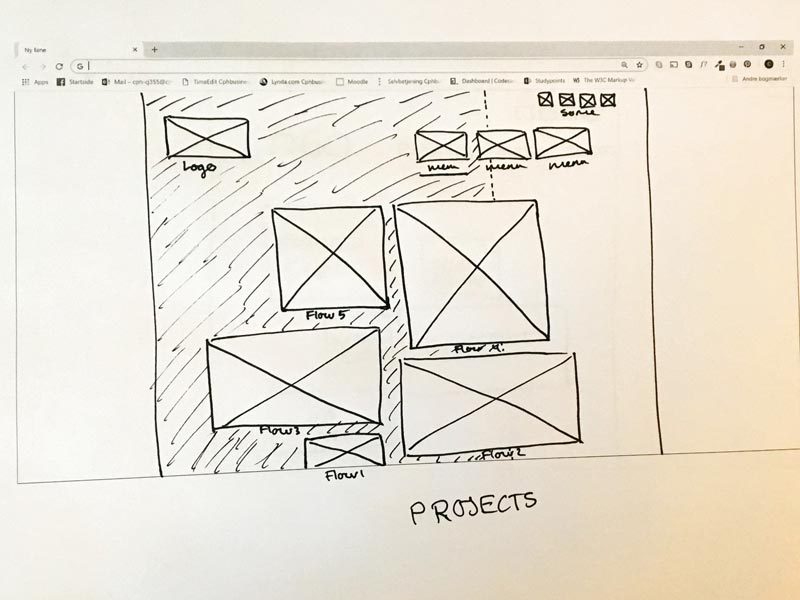 Ny fane
G
Apps Startside Mail – cph-cj355@cp TimeEdit Cphbusine Lynda.com Cphbus Moodle Selvbetjening Cphb Dashboard | Codeca Studypoints The W3C Markup Va Andre bogmærker
SOME
Logo
menu menu menu
Flow 5
Flow 4
Flow 3
Flow 2
Flow 1
PROJECTS